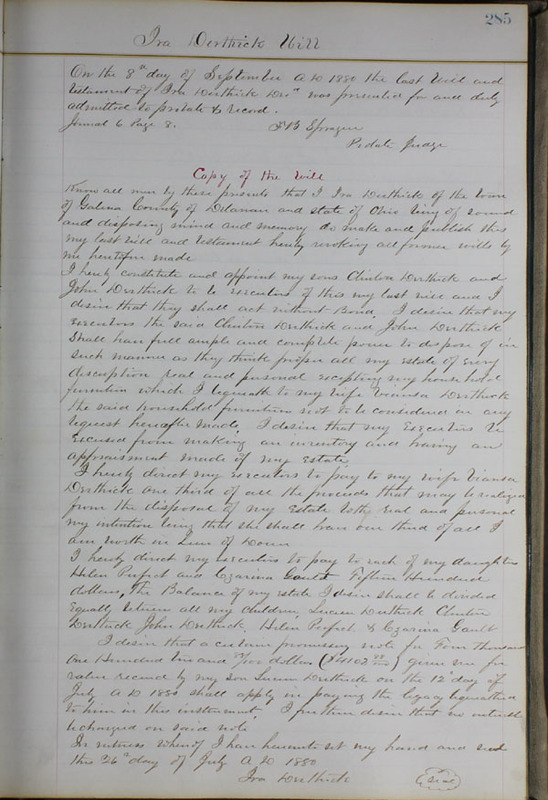 285
Ira Derthick Will
On the 8th day of September A D 1880 the last Will and
testament of Ira Derthick Decd was presented for and duly
admitted to probate & record.
Journal 6 Page 8. F B Sprague
Probate Judge
Copy of the Will
Know all men by these presents that I Ira Derthick of the town
of Galena County of Delaware and state of Ohio being of sound
and disposing mind and memory do make and publish this
my last will and testament hereby revoking all former wills by
me heretofore made
I hereby constitute and appoint my sons Clinton Derthick and
John Derthick to be executors of this my last will and I
desire that they shall act without Bond, I desire that my
executors the said Clinton Derthick and John Derthick
shall have full ample and complete power to dispose of in
such manner as they think proper all my estate of every
description real and personal excepting my household
furniture which I bequeath to my wife Derthick
the said household furniture not to be considered in any
bequest hereafter made, I desire that my executors be
excused from making an inventory and having an
appraisment made of my estate,
I hereby direct my executors to pay to my wife
Derthick one third of all the proceeds that may be realized
from the disposal of my estate both real and personal
my intention being that she shall have one third of all I
am worth in Lieu of Dower
I hereby direct my executors to pay to each of my daughters
Helen Perfect and Czarina Gault Fifteen Hundred
dollars, The Balance of my estate I desire shall be divided
equally between all my children, Lucien Derthick Clinton
Derthick John Derthick, Helen Perfect & Czarina Gault
I desire that a certain promissory note for Four thousand
One Hundred and Two dollars ($4102) given me for
value received by my son Lucien Derthick on the 12th day of
July A D 1880 shall apply in paying the legacy bequeathed
to him in this instrument, I further desire that no interest
be charged on said note
In witness whereof I have hereunto set my hand and seal
this 26th day of July A D 1880
Ira Derthick seal